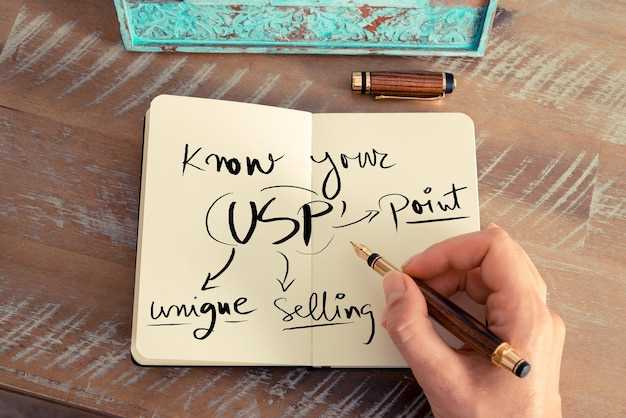 Know your
USP
Point
unique
selling